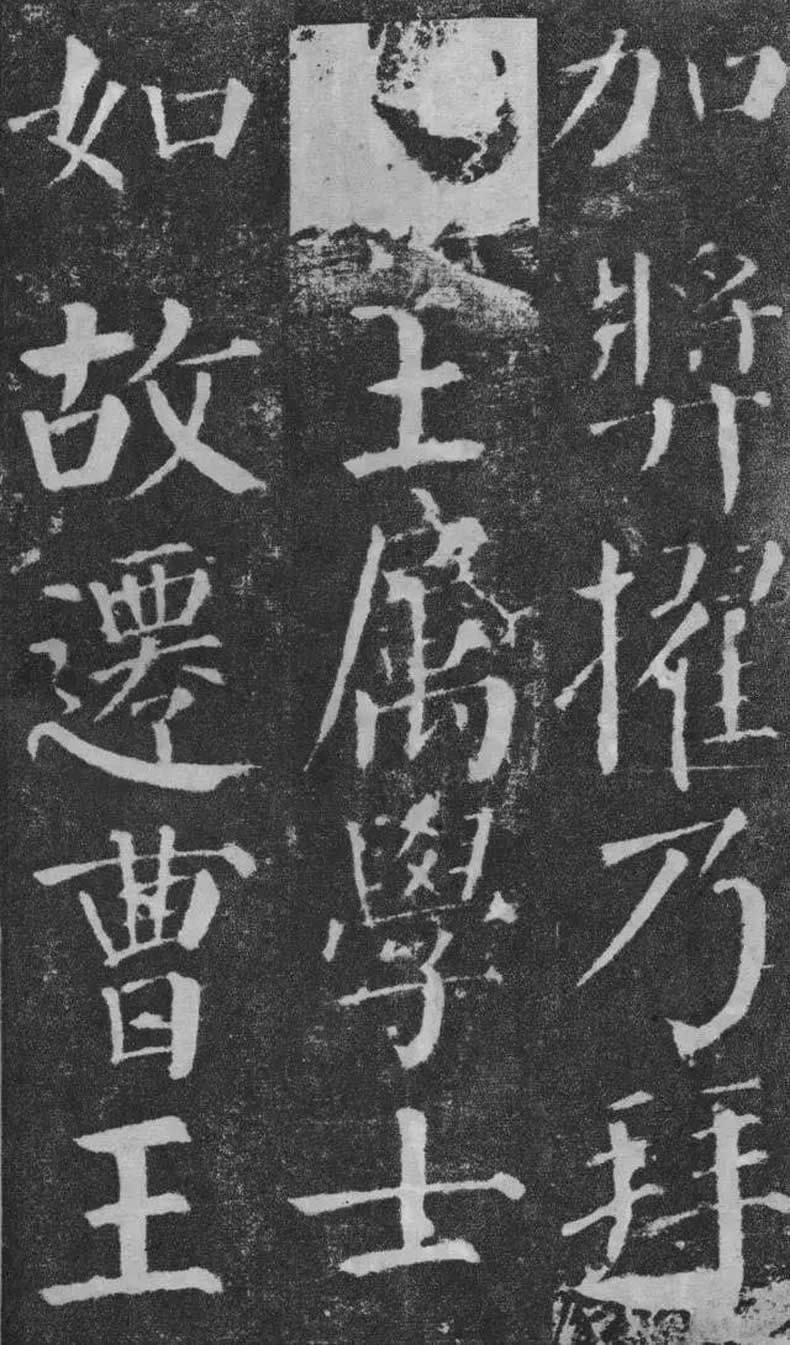 加奬擢乃拜
王属學士
如故遷曹王